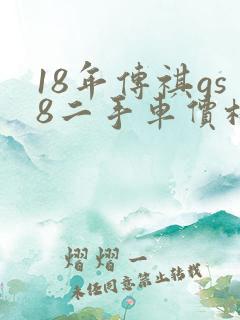 18年傳祺gs
8二手車價格
熠熠一
未经同意禁止转载